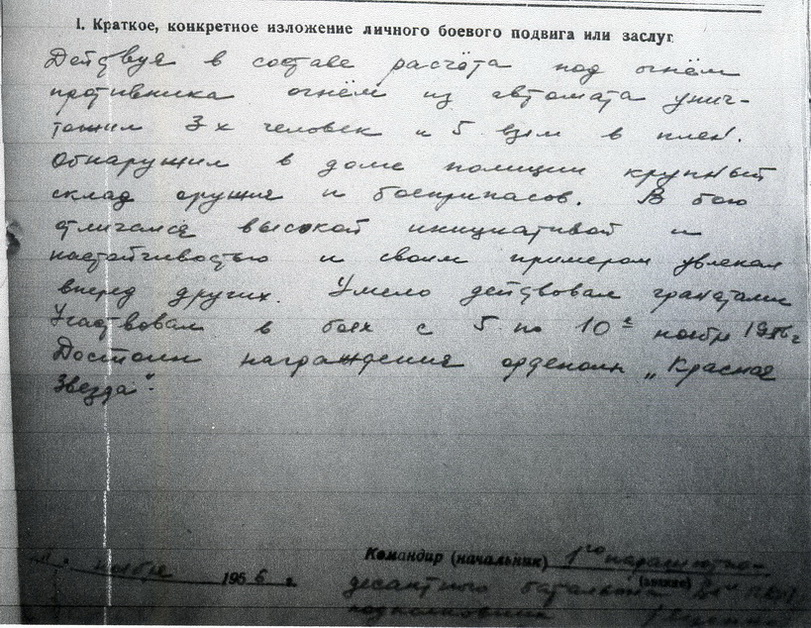 I. Краткое, конкретное изложение личного боевого подвига или заслуг
Действуя в составе расчёта под огнём
противника огнём из автомата унич-
тожил 3х человек и 5 взял в плен.
Обнаружил в доме полиции крупный
склад оружия и боеприпасов. В бою
отличался высокой инициативой и
настойчивостью и своим примером увлекал
вперед других. Умело действовал гранатами
Участвовал в боях с 5 по 10е ноября 1956 г
Достоин награждения орденом „Красная
Звезда".
ноября 1956 г.
Командир (начальник) 1го парашютно-
десантного батальона
(звание)
подполковник